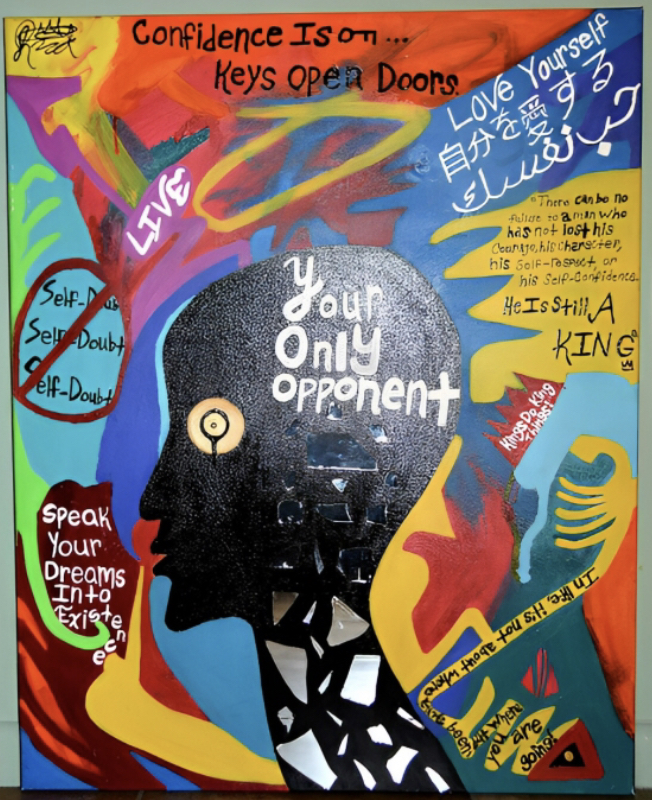 Confidence Is on ...
Keys Open Doors.
Love Yourself
自分を愛する
حب نفسك
LIVE
"There can be no
failure to a man who
has not lost his
Courage, his character,
his Self-respect, or
his Self-Confidence.
He Is Still A
KING
Self-Doub
Self-Doubt
Self-Doubt
Your
Only
Opponent
Kings Do King
Things!
Speak
Your
Dreams
Into
Existe
n
ce
In life, it's not about where
been
where
you are
going!